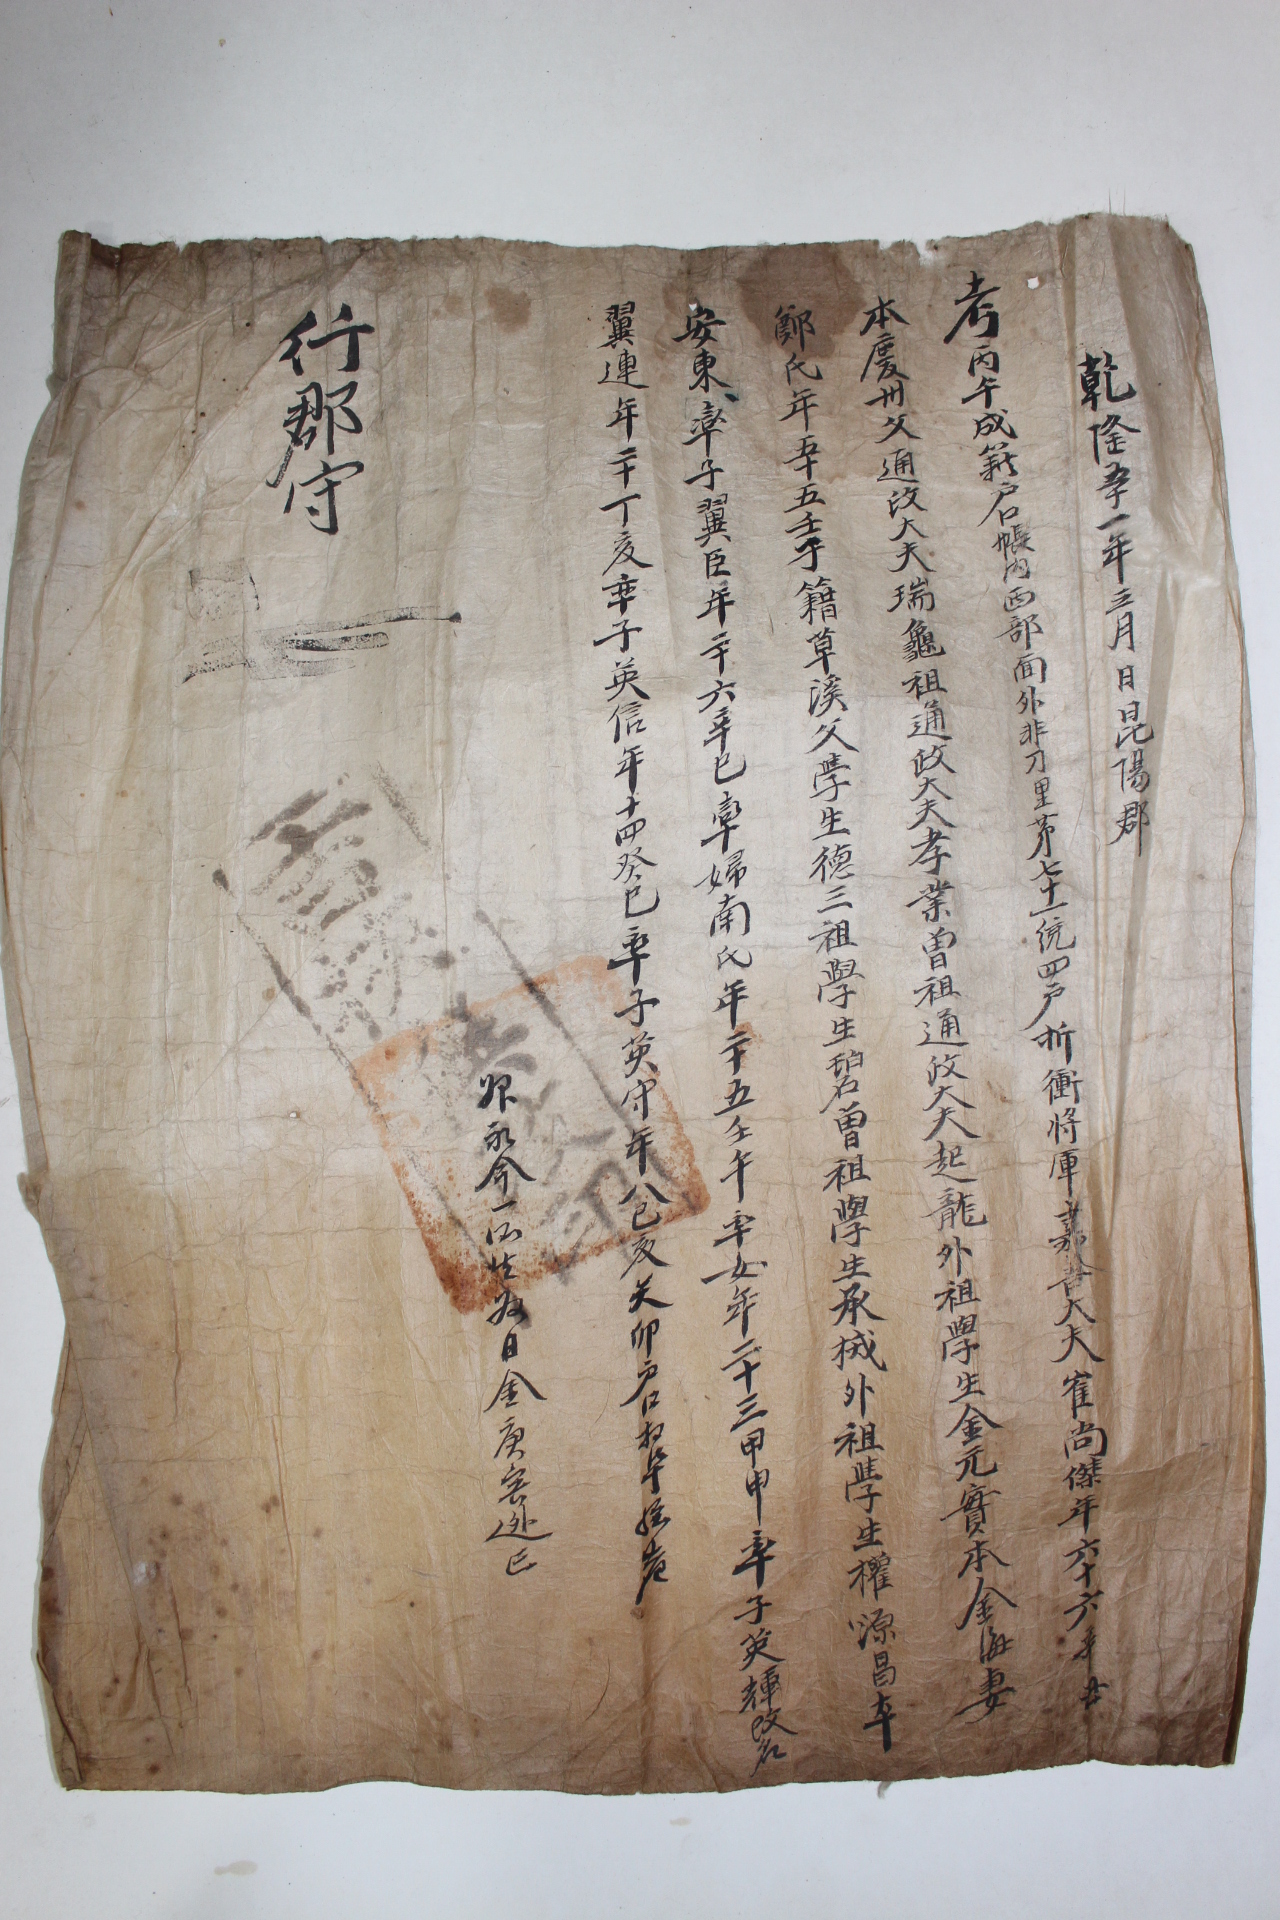 乾隆五十一年三月日昆陽郡
考丙午成籍戶口帳內西部面外非刀里第七十一統四戶折衝將軍嘉善大夫崔尙傑年六十六辛丑
本慶州父通政大夫瑞龜祖通政大夫孝業曾祖通政大夫起龍外祖學生金元寶本金海妻
鄭氏年五十五壬子籍草溪父學生德三祖學生碧曾祖學生承棫外祖學生權源昌本
安東率子翼臣年二十六辛巳率婦南氏年二十五壬午率女年二十三甲申率子英輝改名
翼連年二十丁亥率子英信年十四癸巳率子英守年八己亥癸卯戶口
金庚
行郡守